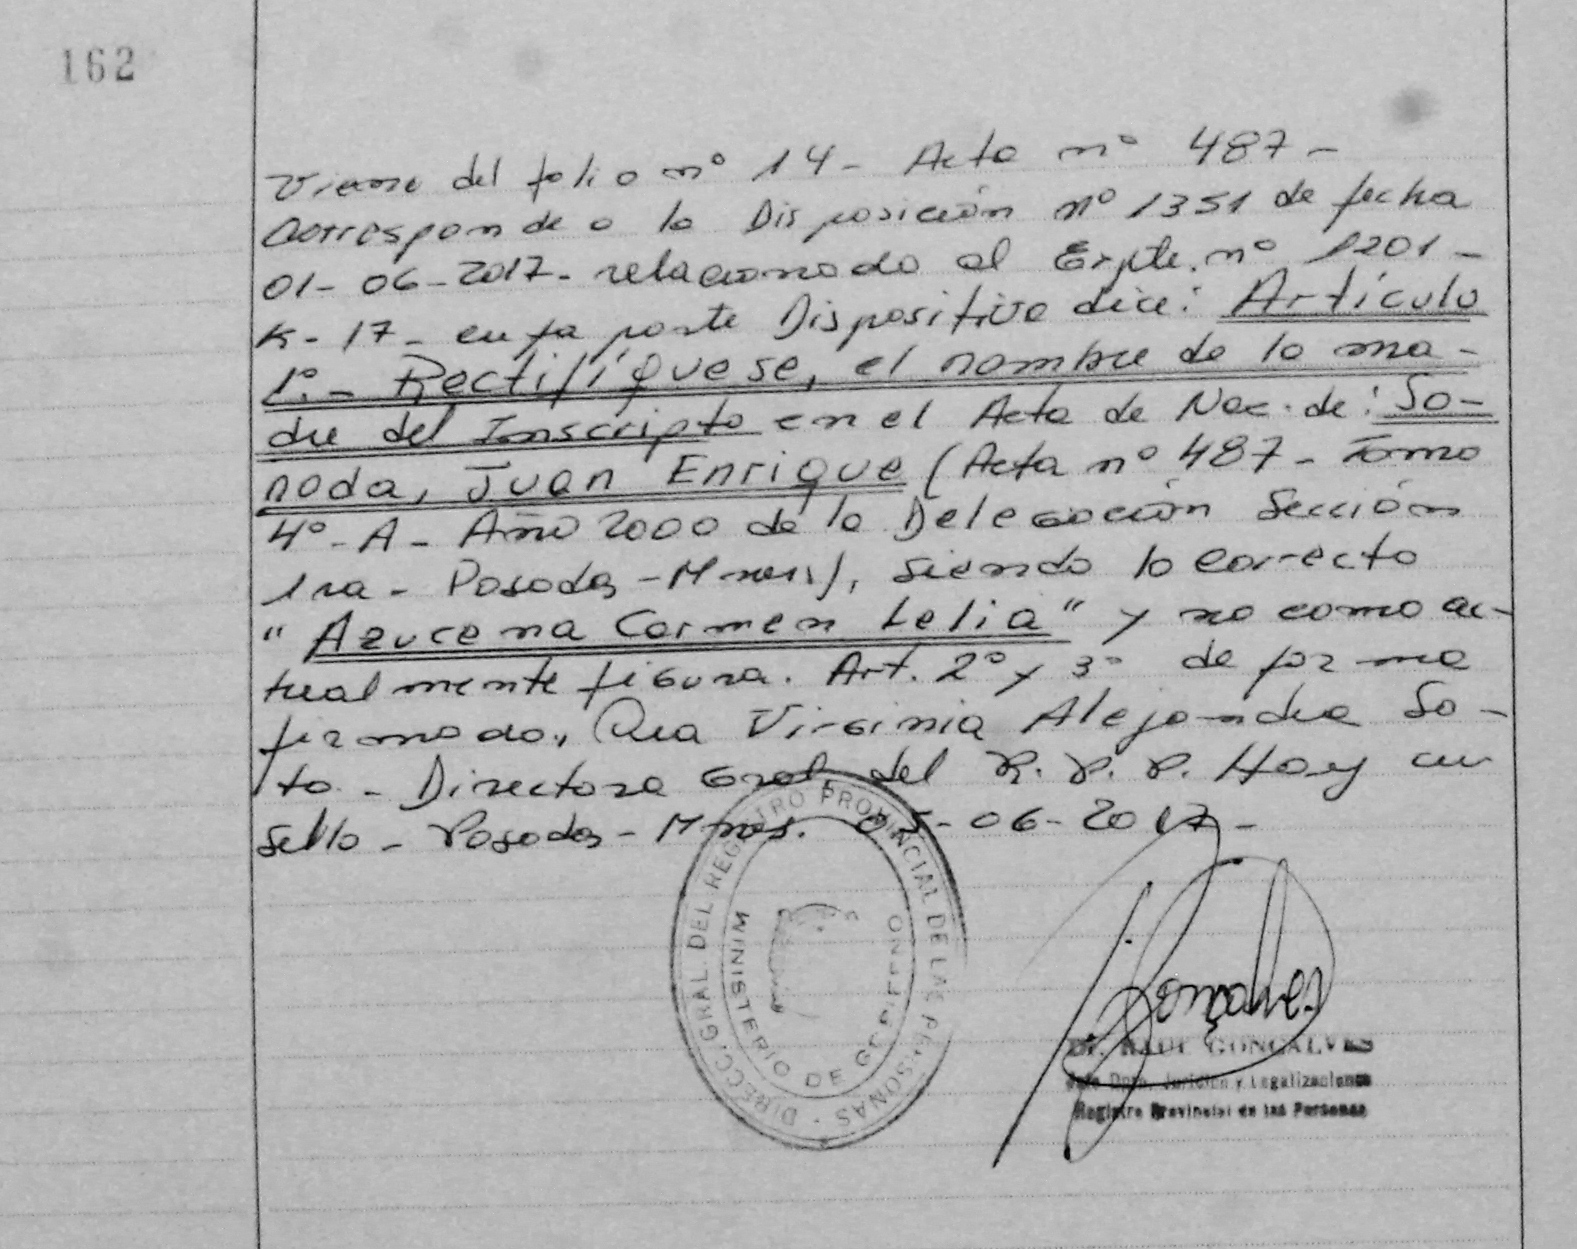 162
Viene del folio nº 14 - Acta nº 487 -
Corresponde a la Disposición nº 1351 de fecha
01-06-2017- relacionado al Expte. nº 1201-
K-17- en la parte Dispositiva dice: Artículo
1º.- Rectifíquese, el nombre de la ma-
dre del Inscripto en el Acta de Nac. de: So-
noda, Juan Enrique (Acta nº 487 - Tomo
4º-A- Año 2000 de la Delegación Sección
1ra - Posadas - Mnes), siendo lo correcto
"Azucena Carmen Lelia" y no como ac-
tualmente figura. Art. 2º y 3º de forma
firmado, Dra Virginia Alejandra So-
to - Directora Gral. del R.P.P. Hay un
sello - Posadas - Mnes. 05-06-2017-
DIRECC. GRAL. DEL REGISTRO PROVINCIAL DE LAS PERSONAS -
MINISTERIO DE GOBIERNO
Gonçalves
Dr. RAUL GONCALVES
Jefe Dpto. Jurídico y Legalizaciones
Registro Provincial de las Personas